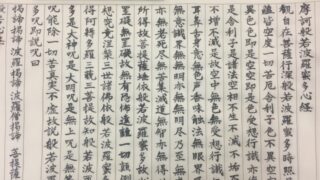 摩訶般若波羅蜜多心経
観自在菩薩行深般若波羅蜜多時照
蘊皆空度一切苦厄舎利子色不異空
異色色即是空空即是色受想行識亦
是舎利子是諸法空相不生不滅不垢
不増不減是故空中無色無受想行識
耳鼻舌身意無色声香味触法無眼界
無意識界無無明亦無無明尽乃至無
亦無老死尽無苦集滅道無智亦無得
所得故菩提薩埵依般若波羅蜜多故
罣礙無罣礙故無有恐怖遠離一切顛
想究竟涅槃三世諸仏依般若波羅蜜
得阿耨多羅三藐三菩提故知般若波
多是大神呪是大明呪是無上呪是無等
呪能除一切苦真実不虚故説般若波羅
多呪即説呪曰
掲諦掲諦波羅掲諦波羅僧掲諦菩提薩